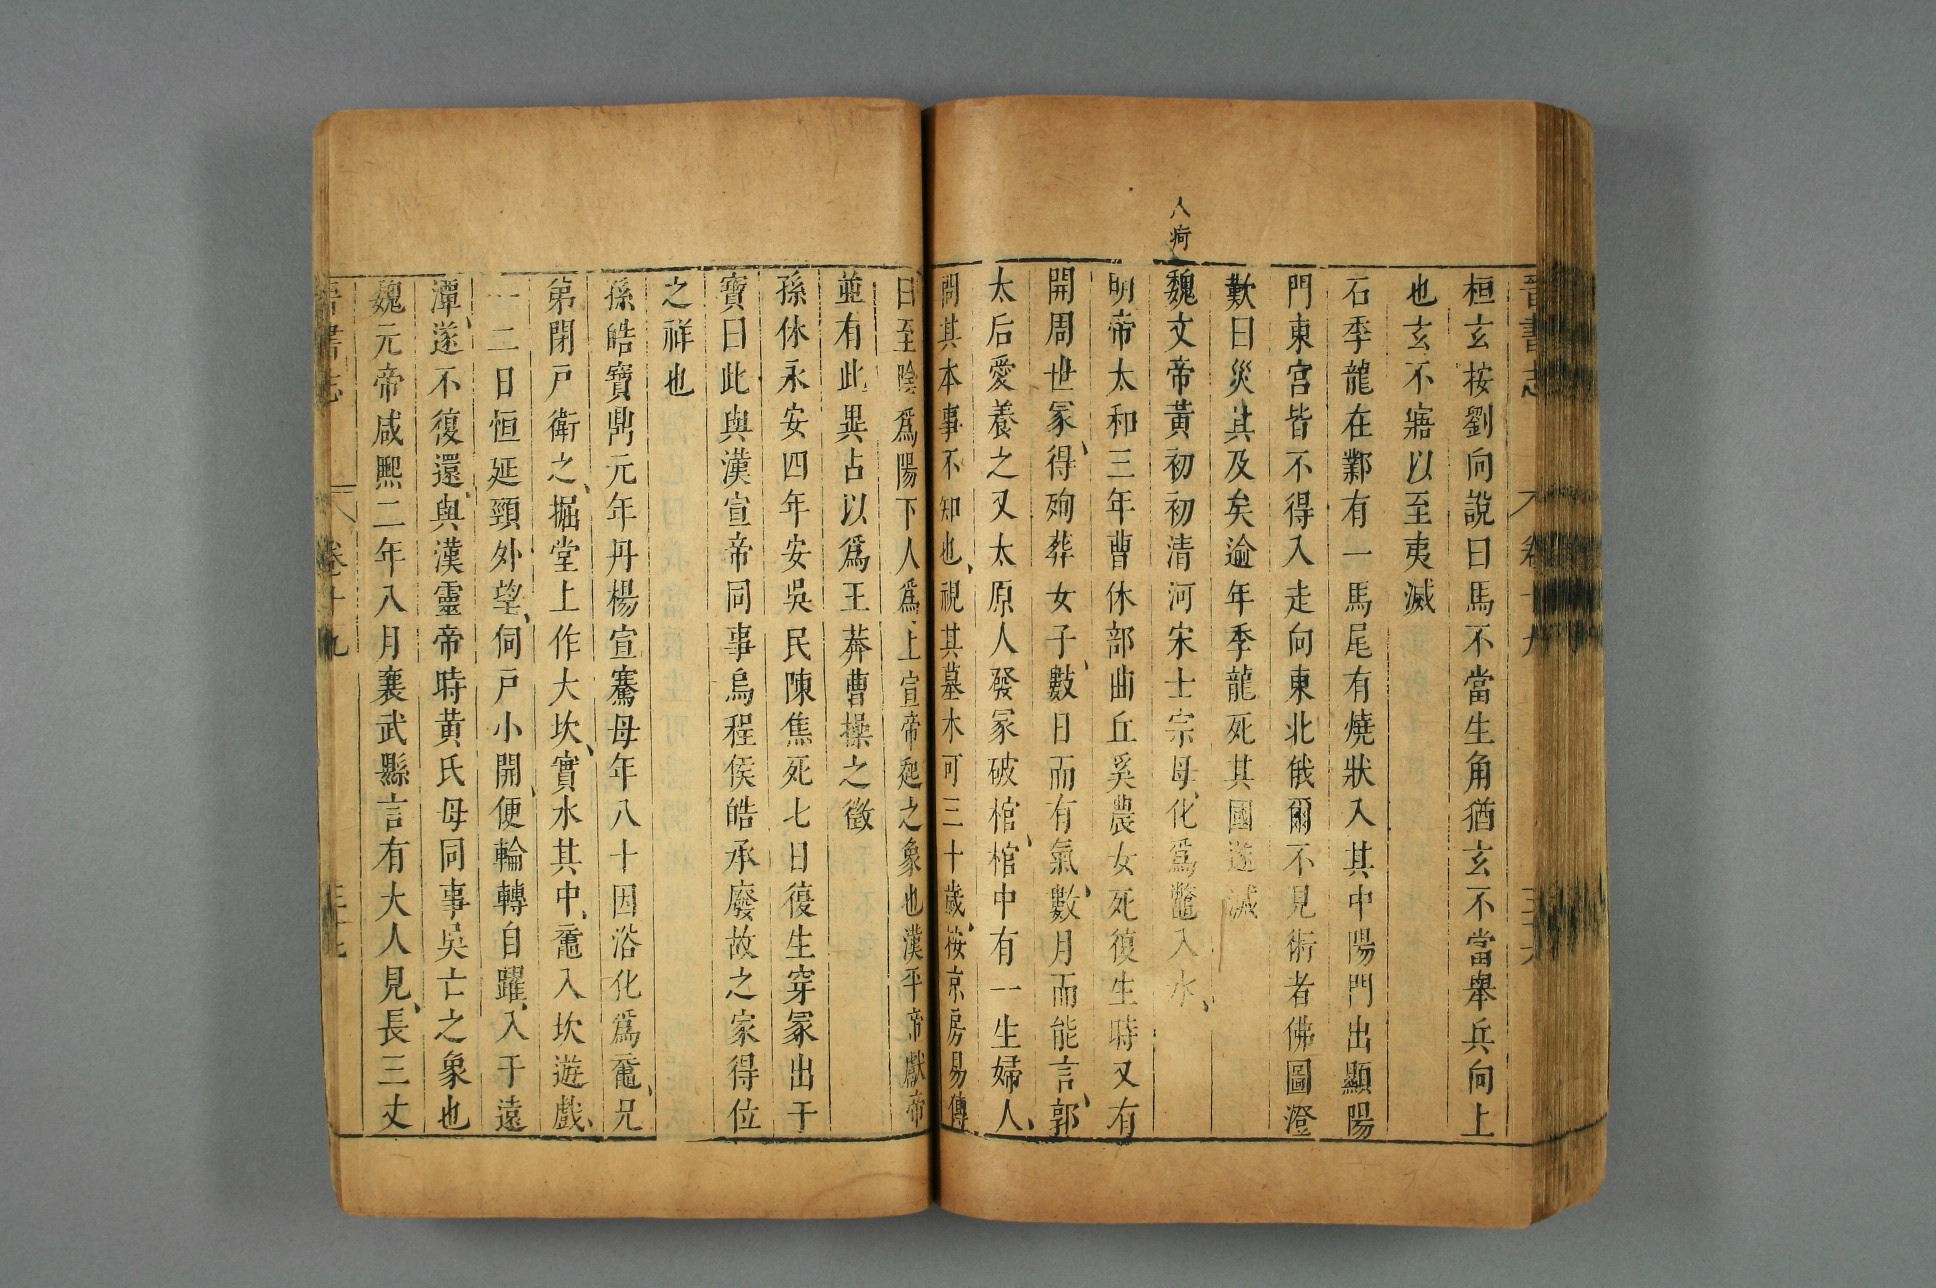 晉書志 卷十九 三十六
桓玄按劉向說曰馬不當生角猶玄不當舉兵向上
也玄不寤以至夷滅
石季龍在鄴有一馬尾有燒狀入其中陽門出顯陽
門東宮皆不得入走向東北俄爾不見術者佛圖澄
歎曰災其及矣逾年季龍死其國遂滅
人痾
魏文帝黃初初清河宋士宗母化爲鼈入水
明帝太和三年曹休部曲丘奚農女死復生時又有
開周世冢得殉葬女子數日而有氣數月而能言郭
太后愛養之又太原人發冢破棺棺中有一生婦人
問其本事不知也視其墓木可三十歲按京房易傳
曰至陰爲陽下人爲上宣帝起之象也漢平帝獻帝
並有此異占以爲王莽曹操之徵
孫休永安四年安吳民陳焦死七日復生穿冢出干
寶曰此與漢宣帝同事烏程侯皓承廢故之家得位
之祥也
孫皓寶鼎元年丹楊宣騫母年八十因浴化爲黿兄
弟閉戶衛之掘堂上作大坎實水其中黿入坎遊戲
一二日恒延頸外望伺戶小開便輪轉自躍入于遠
潭遂不復還與漢靈帝時黃氏母同事吳亡之象也
魏元帝咸熙二年八月襄武縣言有大人見長三丈
晉書志 卷十九 三十七